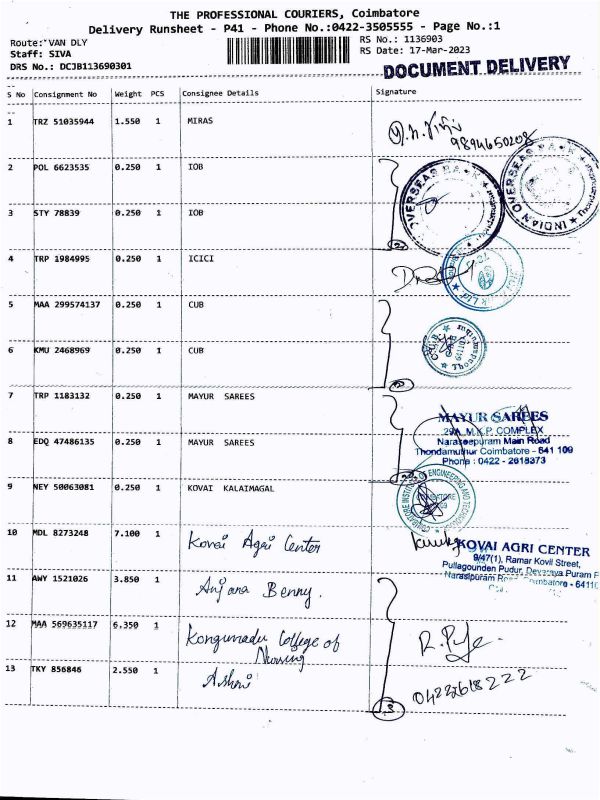 THE PROFESSIONAL COURIERS, Coimbatore
Delivery Runsheet - P41 - Phone No.:0422-3505555 - Page No.:1
Route: VAN DLY
Staff: SIVA
DRS No.: DCJB113690301
RS No.: 1136903
RS Date: 17-Mar-2023
DOCUMENT DELIVERY
S No Consignment No Weight PCS Consignee Details Signature
1 TRZ 51035944 1.550 1 MIRAS
9894650208
2 POL 6623535 0.250 1 IOB
OVERSEAS BANK
INDIAN OVERSEAS BANK
3 STY 78839 0.250 1 IOB
4 TRP 1984995 0.250 1 ICICI
5 MAA 299574137 0.250 1 CUB
6 KMU 2468969 0.250 1 CUB
7 TRP 1183132 0.250 1 MAYUR SAREES
MAYUR SAREES
29A, M.K.P. COMPLEX
Naraseepuram Main Road
Thondamuthur Coimbatore - 641 109
Phone : 0422 - 2618373
8 EDQ 47486135 0.250 1 MAYUR SAREES
9 NEY 50063081 0.250 1 KOVAI KALAIMAGAL
COIMBATORE INSTITUTE OF ENGINEERING AND TECHNOLOGY
10 MDL 8273248 7.100 1 Kovai Agri Center
KOVAI AGRI CENTER
9/47(1), Ramar Kovil Street,
Pullagounden Pudur, Devaraya Puram
Narasipuram Coimbatore - 6410
11 AWY 1521026 3.850 1 Anjana Benny.
12 MAA 569635117 6.350 1 Kongunadu College of
Nursing
13 TKY 856846 2.550 1
04222618222